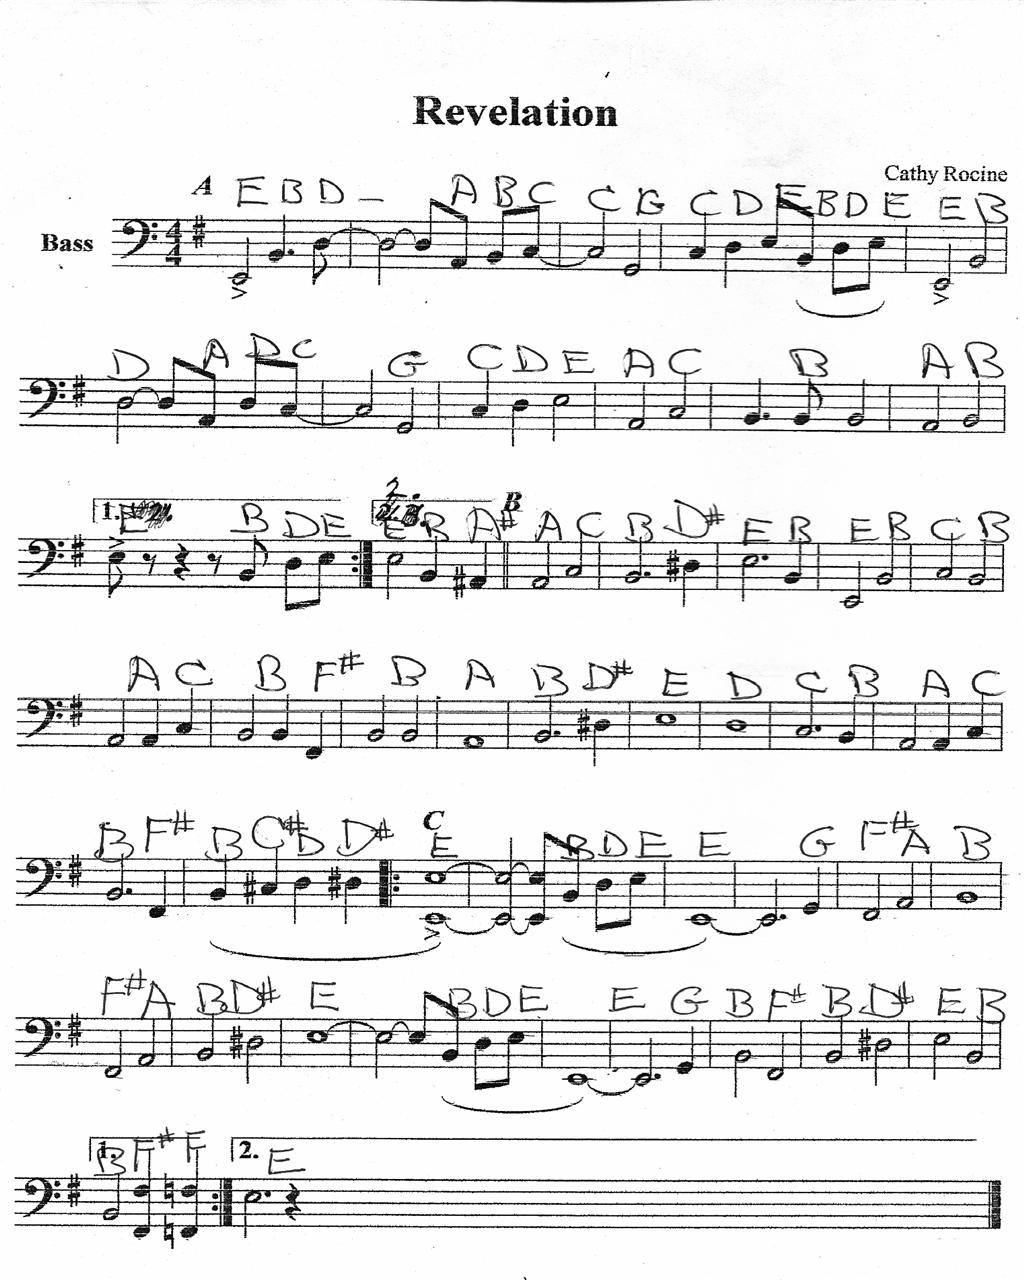 Revelation
Cathy Rocine
A E B D _ A B C C G C D E B D E E B
Bass 4 4
D A D C G C D E A C B A B
1. E B D E 2. E B A# B A C B D# E B E B C B
A C B F# B A B D# E D C B A C
B F# B C# D D# C E B D E E G F# A B
F# A B D# E B D E E G B F# B D# E B
1. B F# F 2. E